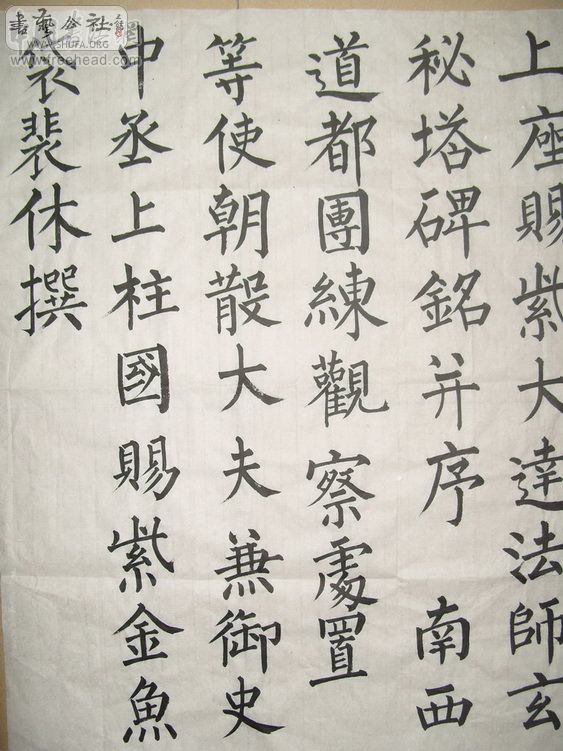 上座賜紫大達法師玄
秘塔碑銘并序 南西
道都團練觀察處置
等使朝散大夫兼御史
中丞上柱國賜紫金魚
袋裴休撰
書藝公社
WWW.SHUFA.ORG
www.freehead.com